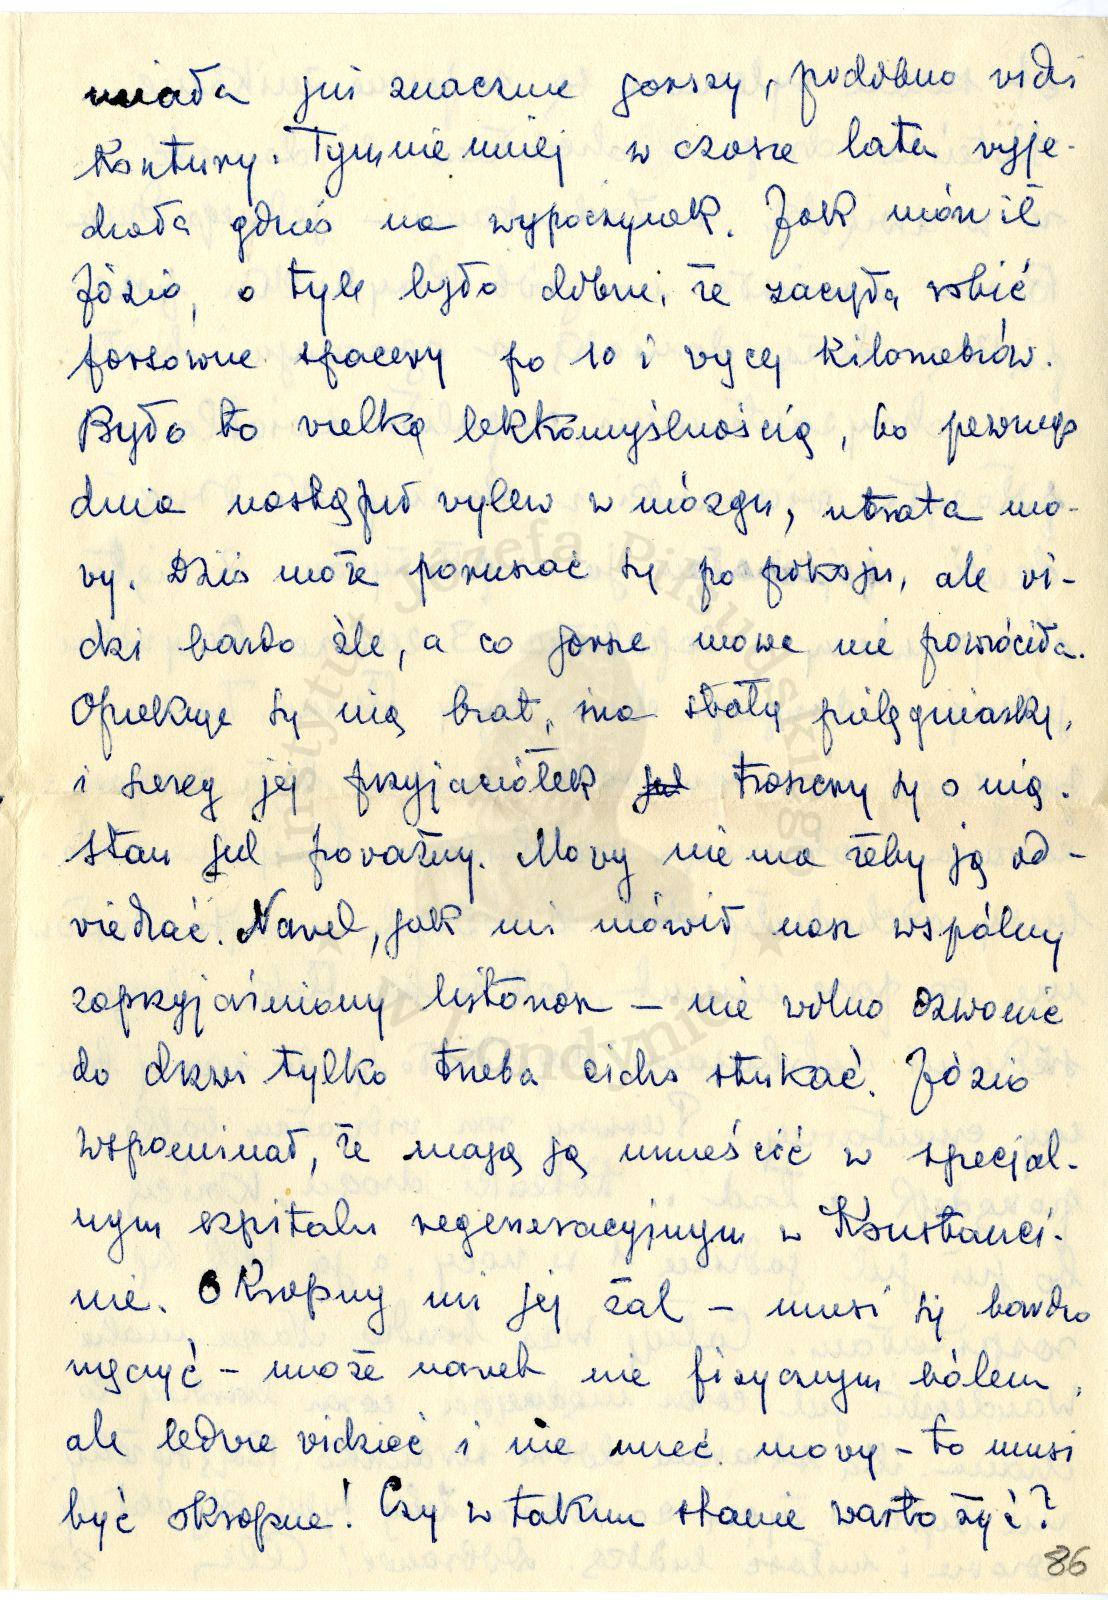 miała już znacznie gorszy, podobno widzi
kontury. Tym nie mniej w czasie lata wyje-
chała gdzieś na wypoczynek. Jak mówił
Józio, o tyle było dobrze, że zaczęła robić
forsowne spacery po 10 i więcej kilometrów.
Było to wielką lekkomyślnością, bo pewnego
dnia nastąpił wylew w mózgu, utrata mo-
wy. Dziś może poruszać się po pokoju, ale wi-
dzi bardzo źle, a co gorsze mowa nie powróciła.
Opiekuje się nią brat, ma stałą pielęgniarkę,
i szereg jej przyjaciółek jest troszczy się o nią.
Stan jest poważny. Mowy nie ma żeby ją od-
wiedzać. Nawet, jak mi mówił nasz wspólny
zaprzyjaźniony listonosz – nie wolno dzwonić
do drzwi tylko trzeba cicho stukać. Józio
wspominał, że mają ją umieścić w specjal-
nym szpitalu regeneracyjnym w Konstanci-
nie. Okropny mi jej żal – musi się bardzo
męczyć – może nawet nie fizycznym bólem,
ale ledwie widzieć i nie mieć mowy – to musi
być okropne! Czy w takim stanie warto żyć?
86
Instytut Józefa Piłsudskiego
w Londynie